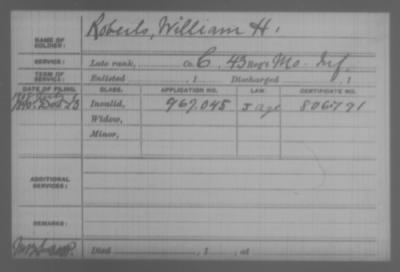 NAME OF SOLDIER: Roberts, William H.
SERVICE: Late rank, Co. C, 43 Reg't Mo. Inf.
TERM OF SERVICE: Enlisted , 1 Discharged , 1
DATE OF FILING. CLASS. APPLICATION NO. LAW. CERTIFICATE NO.
Invalid, 967.045 J age 806791
Widow,
Minor,
ADDITIONAL SERVICES:
REMARKS:
Died , 1 , at